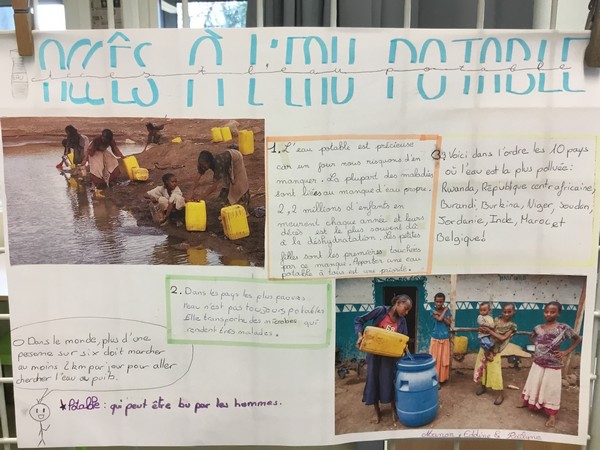 ACCÈS À L'EAU POTABLE
1. L'eau potable est précieuse
car un jour nous risquons d'en
manquer. La plupart des maladies
sont liées au manque d'eau propre.
2,2 millions d'enfants en
meurent chaque année et leurs
décès est le plus souvent dû
à la déshydratation. Les petites
filles sont les premières touchées
par ce manque. Apporter une eau
potable à tous est une priorité.
3. Voici dans l'ordre les 10 pays
où l'eau est la plus polluée:
Rwanda, République centrafricaine,
Burandi, Burkina, Niger, Souden,
Jordanie, Inde, Maroc et
Belgique!
2. Dans les pays les plus pauvres
l'eau n'est pas toujours potable.
Elle transporte des microbes qui
rendent très malades.
Dans le monde, plus d'une
personne sur six doit marcher
au moins 1 km par jour pour aller
chercher l'eau au puits.
* Potable : qui peut être bu par les hommes.
Manon